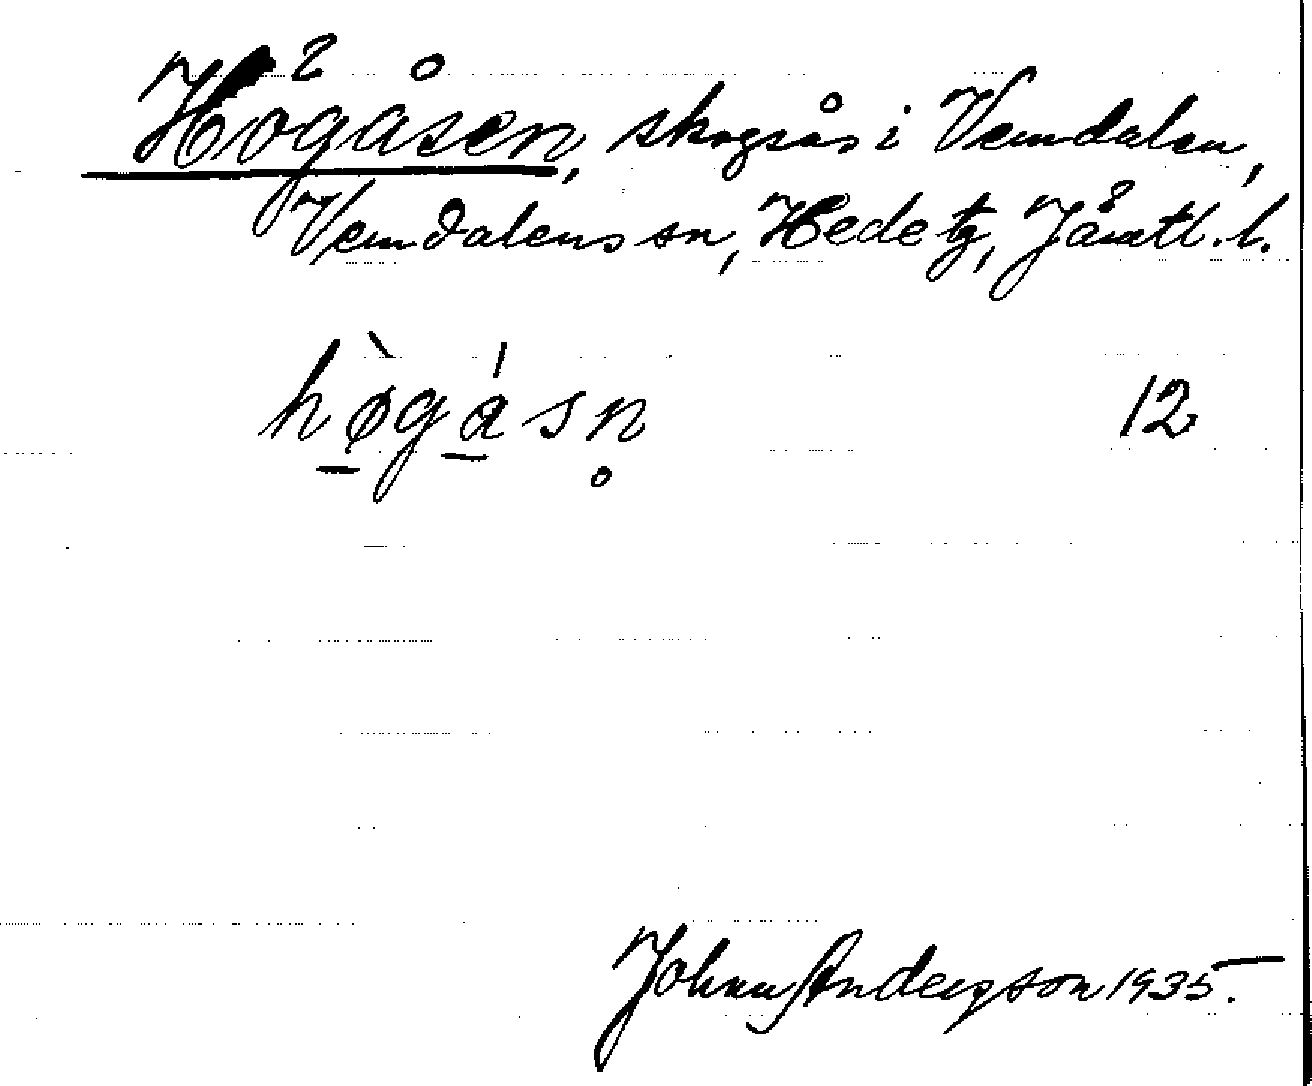 Högåsen, skogsås i Vemdalen,
Vemdalens sn, Hede tg, Jämtl. l.
hø̀gásn̥ 12
Johan Anderson 1935.